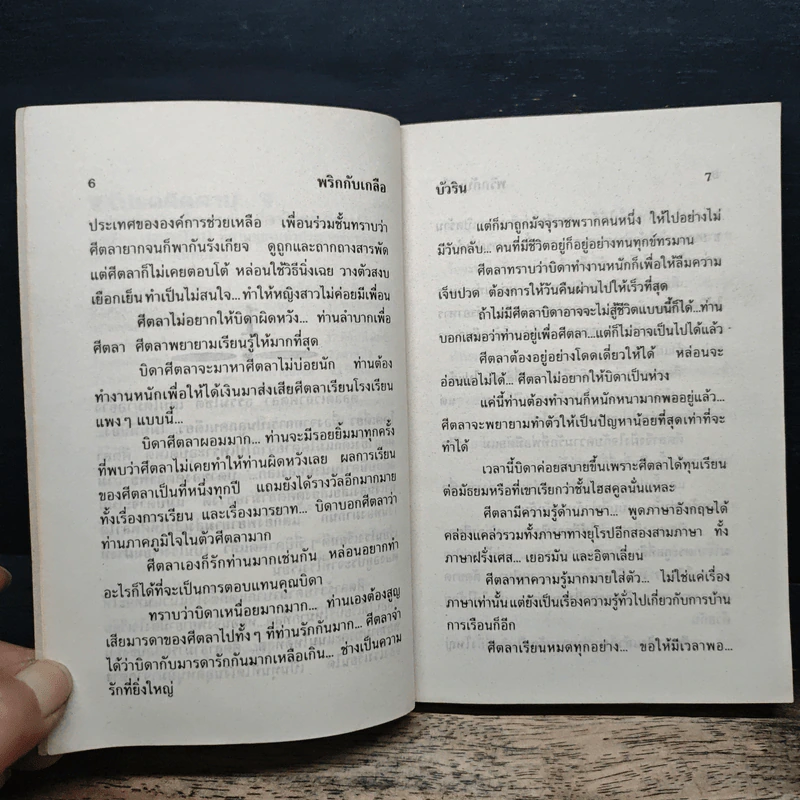 6
พริกกับเกลือ
ประเทศขององค์การช่วยเหลือ เพื่อนร่วมชั้นทราบว่า
ศีตลายากจนก็พากันรังเกียจ ดูถูกและถากถางสารพัด
แต่ศีตลาก็ไม่เคยตอบโต้ หล่อนใช้วิธีนิ่งเฉย วางตัวสงบ
เยือกเย็น ทำเป็นไม่สนใจ... ทำให้หญิงสาวไม่ค่อยมีเพื่อน
ศีตลาไม่อยากให้บิดาผิดหวัง... ท่านลำบากเพื่อ
ศีตลา ศีตลาพยายามเรียนรู้ให้มากที่สุด
บิดาศีตลาจะมาหาศีตลาไม่บ่อยนัก ท่านต้อง
ทำงานหนักเพื่อให้ได้เงินมาส่งเสียศีตลาเรียนโรงเรียน
แพงๆ แบบนี้...
บิดาศีตลาผอมมาก... ท่านจะมีรอยยิ้มมาทุกครั้ง
ที่พบว่าศีตลาไม่เคยทำให้ท่านผิดหวังเลย ผลการเรียน
ของศีตลาเป็นที่หนึ่งทุกปี แถมยังได้รางวัลอีกมากมาย
ทั้งเรื่องการเรียน และเรื่องมารยาท... บิดาบอกศีตลาว่า
ท่านภาคภูมิใจในตัวศีตลามาก
ศีตลาเองก็รักท่านมากเช่นกัน หล่อนอยากทำ
อะไรก็ได้ที่จะเป็นการตอบแทนคุณบิดา
ทราบว่าบิดาเหนื่อยมากมาก... ท่านเองต้องสูญ
เสียมารดาของศีตลาไปทั้งๆ ที่ท่านรักกันมาก... ศีตลาจำ
ได้ว่าบิดากับมารดารักกันมากเหลือเกิน... ช่างเป็นความ
รักที่ยิ่งใหญ่
บัวริน
7
แต่ก็มาถูกมัจจุราชพรากคนหนึ่ง ให้ไปอย่างไม่
มีวันกลับ... คนที่มีชีวิตอยู่ก็อยู่อย่างทนทุกข์ทรมาน
ศีตลาทราบว่าบิดาทำงานหนักก็เพื่อให้ลืมความ
เจ็บปวด ต้องการให้วันคืนผ่านไปให้เร็วที่สุด
ถ้าไม่มีศีตลาบิดาอาจจะไม่สู้ชีวิตแบบนี้ก็ได้...ท่าน
บอกเสมอว่าท่านอยู่เพื่อศีตลา...แต่ก็ไม่อาจเป็นไปได้แล้ว
ศีตลาต้องอยู่อย่างโดดเดี่ยวให้ได้ หล่อนจะ
อ่อนแอไม่ได้... ศีตลาไม่อยากให้บิดาเป็นห่วง
แค่นี้ท่านต้องทำงานก็หนักหนามากพออยู่แล้ว...
ศีตลาจะพยายามทำตัวให้เป็นปัญหาน้อยที่สุดเท่าที่จะ
ทำได้
เวลานี้บิดาค่อยสบายขึ้นเพราะศีตลาได้ทุนเรียน
ต่อมัธยมหรือที่เขาเรียกว่าชั้นไฮสคูลนั่นแหละ
ศีตลามีความรู้ด้านภาษา... พูดภาษาอังกฤษได้
คล่องแคล่วรวมทั้งภาษาทางยุโรปอีกสองสามภาษา ทั้ง
ภาษาฝรั่งเศส... เยอรมัน และอิตาเลี่ยน
ศีตลาหาความรู้มากมายใส่ตัว... ไม่ใช่แค่เรื่อง
ภาษาเท่านั้น แต่ยังเป็นเรื่องความรู้ทั่วไปเกี่ยวกับการบ้าน
การเรือนก็อีก
ศีตลาเรียนหมดทุกอย่าง... ขอให้มีเวลาพอ...